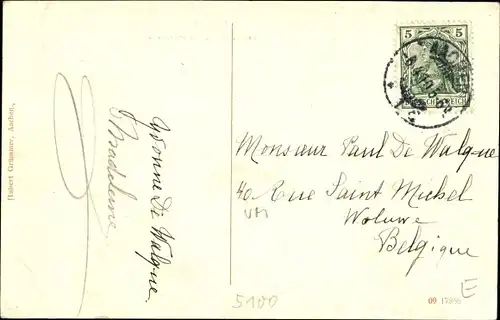 5 5
AACHEN
DEUTSCHES REICH
Monsieur Paul De Walque
40 Rue Saint Michel
Woluwe
Belgique
Yvonne De Walque.
Madeleine
Hubert Grümmer, Aachen.
5100
09
E